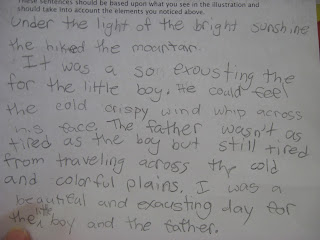 These sentences should be based upon what you see in the illustration and
should take into account the elements you noticed above.
Under the light of the bright sunshine
the hiked the mountan.
It was a so exousting the
for the little boy. He could feel
the cold crispy wind whip across
his face. The father wasn't as
tired as the boy but still tired
from traveling across the cold
and colorful plains. I was a
beautieal and exacusting day for
the little boy and the father.